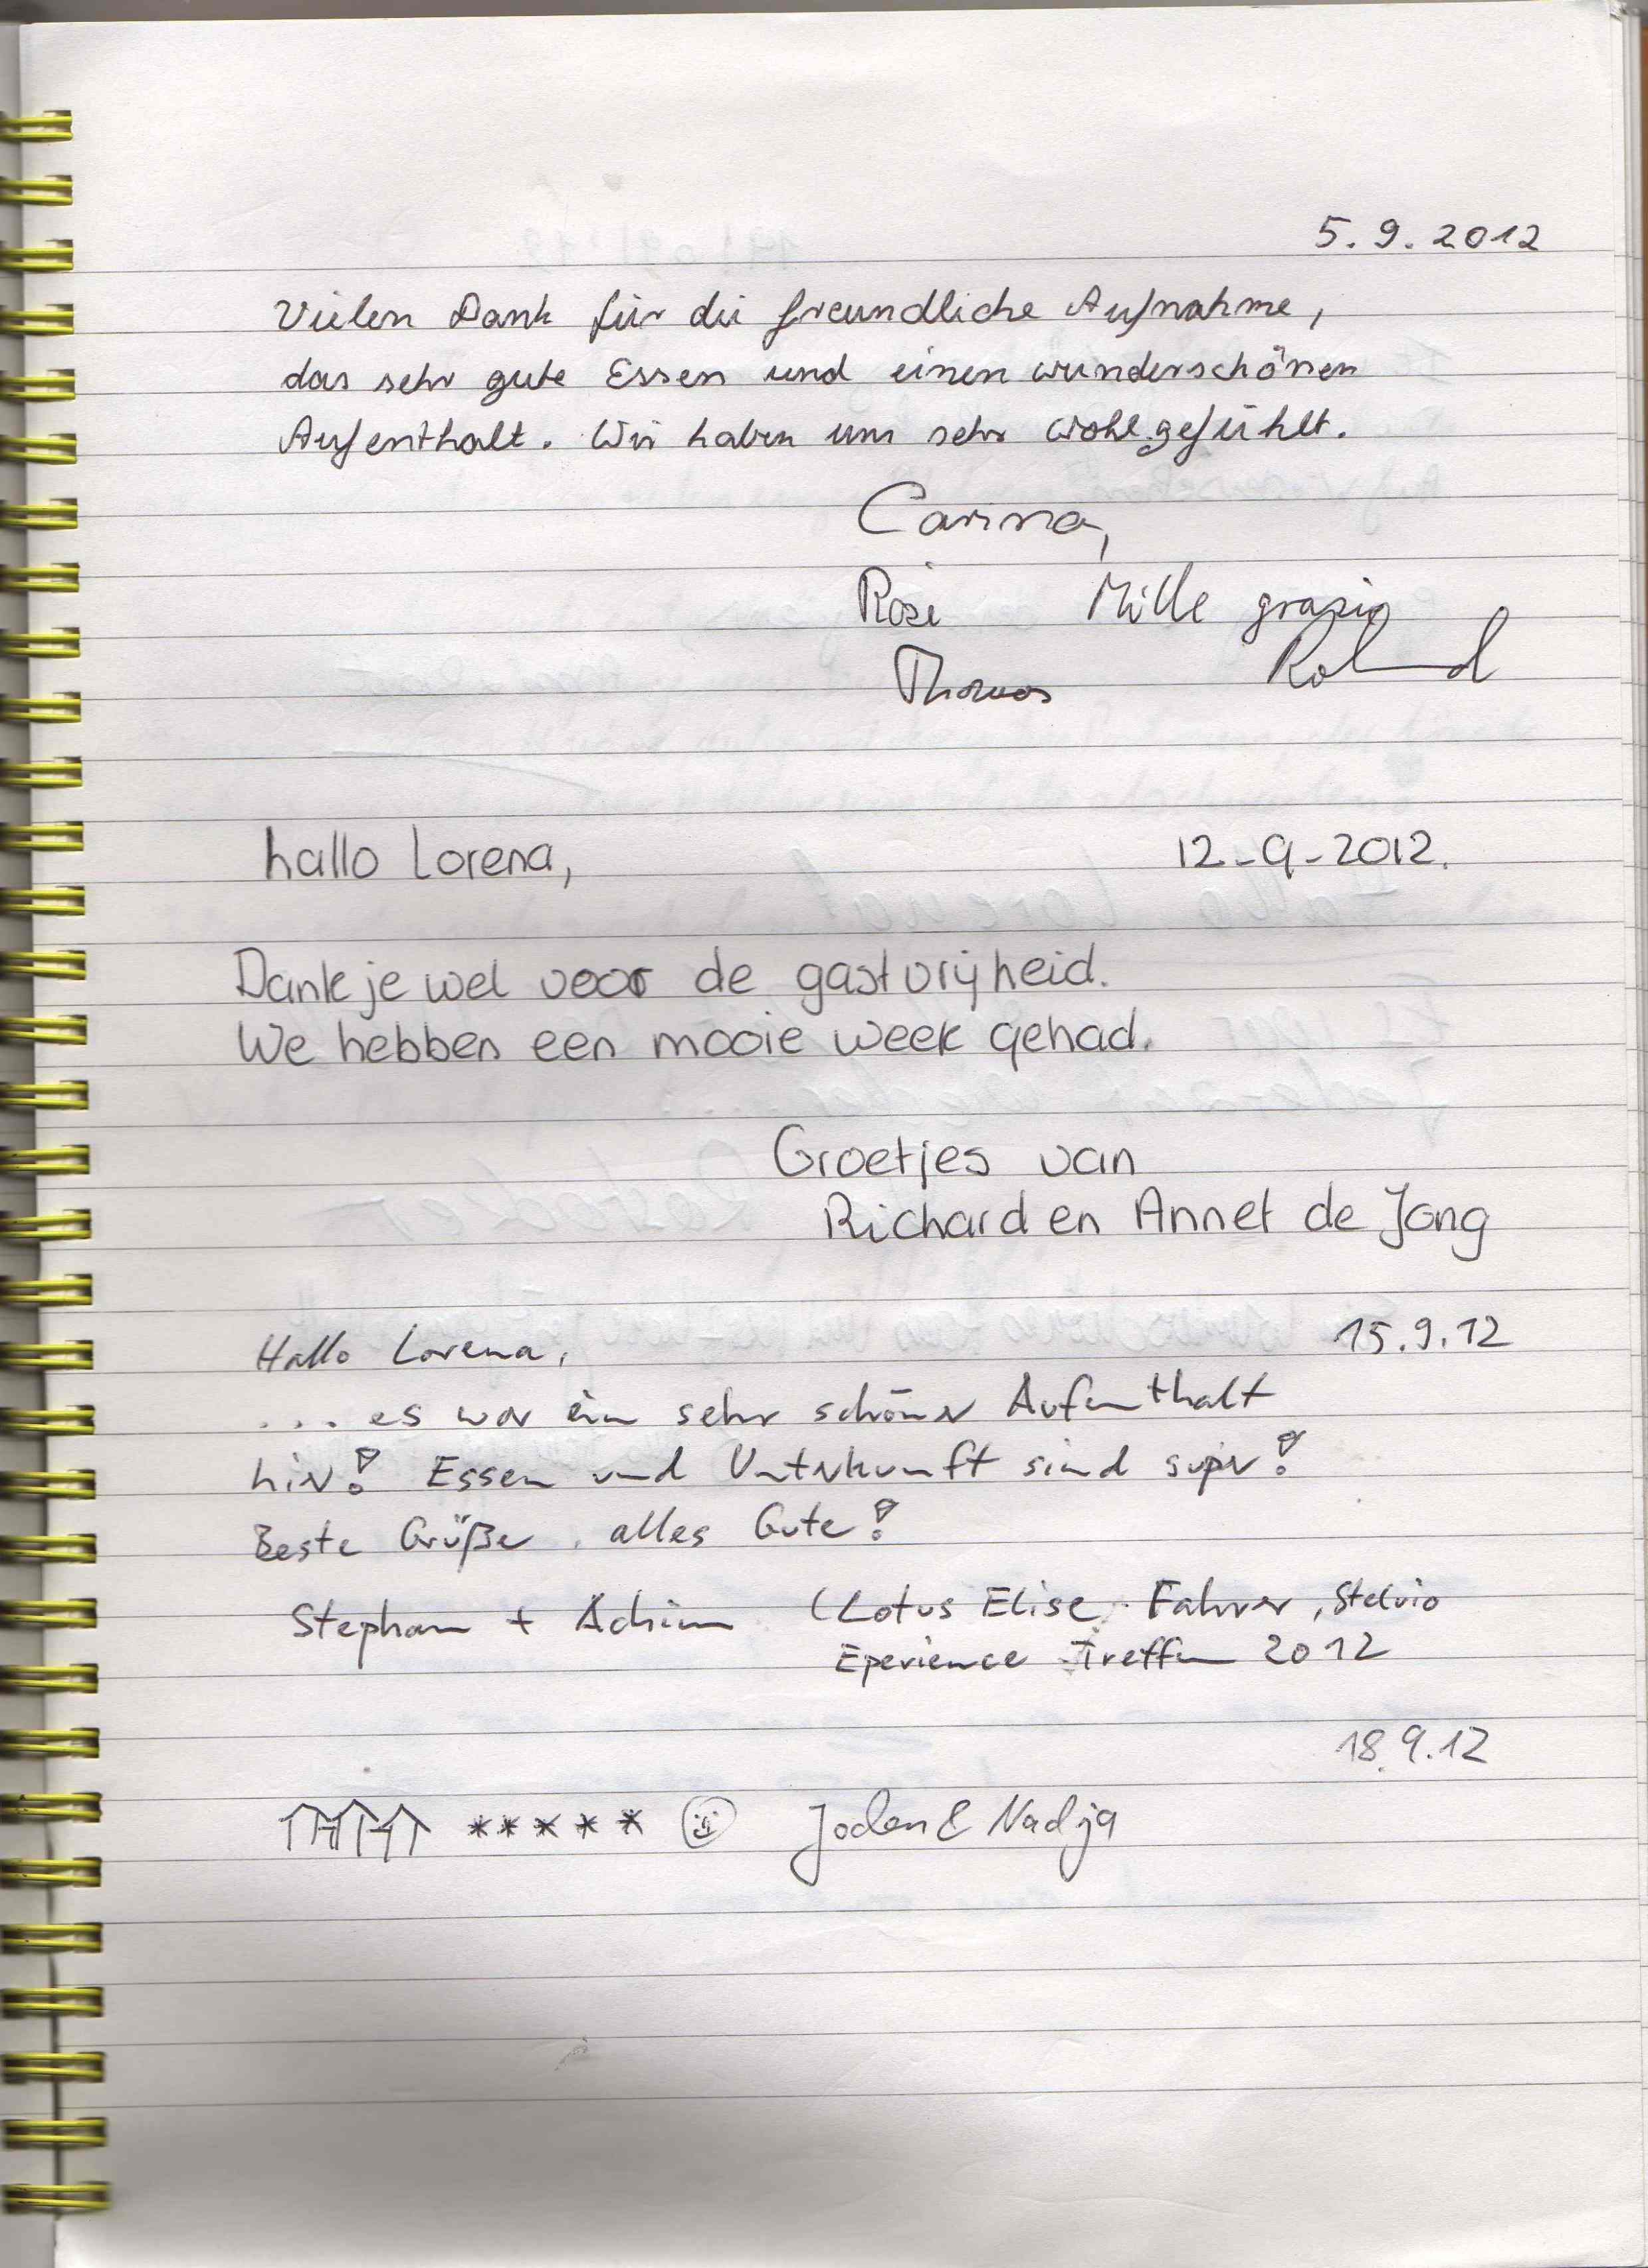 5.9.2012
Vielen Dank für die freundliche Aufnahme,
das sehr gute Essen und einen wunderschönen
Aufenthalt. Wir haben uns sehr wohlgefühlt.
Carina,
Rosi Mille grazie
Thomas Roland
hallo Lorena, 12-9-2012.
Dank je wel voor de gastvrijheid.
We hebben een mooie week gehad.
Groetjes van
Richard en Annet de Jong
Hallo Lorena, 15.9.12
... es war ein sehr schöner Aufenthalt
hier! Essen und Unterkunft sind super!
Beste Grüße, alles Gute!
Stephan + (Lotus Elise Fahrer, Stelvio
Eperience Treffen 2012
18.9.12
***** & Nadja